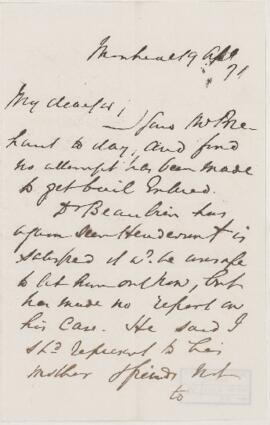 Montreal 9 Apl
71
My dear sir;
I saw Mr Bre-
haut to day, and find
no attempt has been made
to get bail entered.
Dr Beaubien has
again seen & is
satisfied it wd. be unsafe
to let him out now, but
has made no report on
his case. He said I
shd represent to his
mother & friends not
to